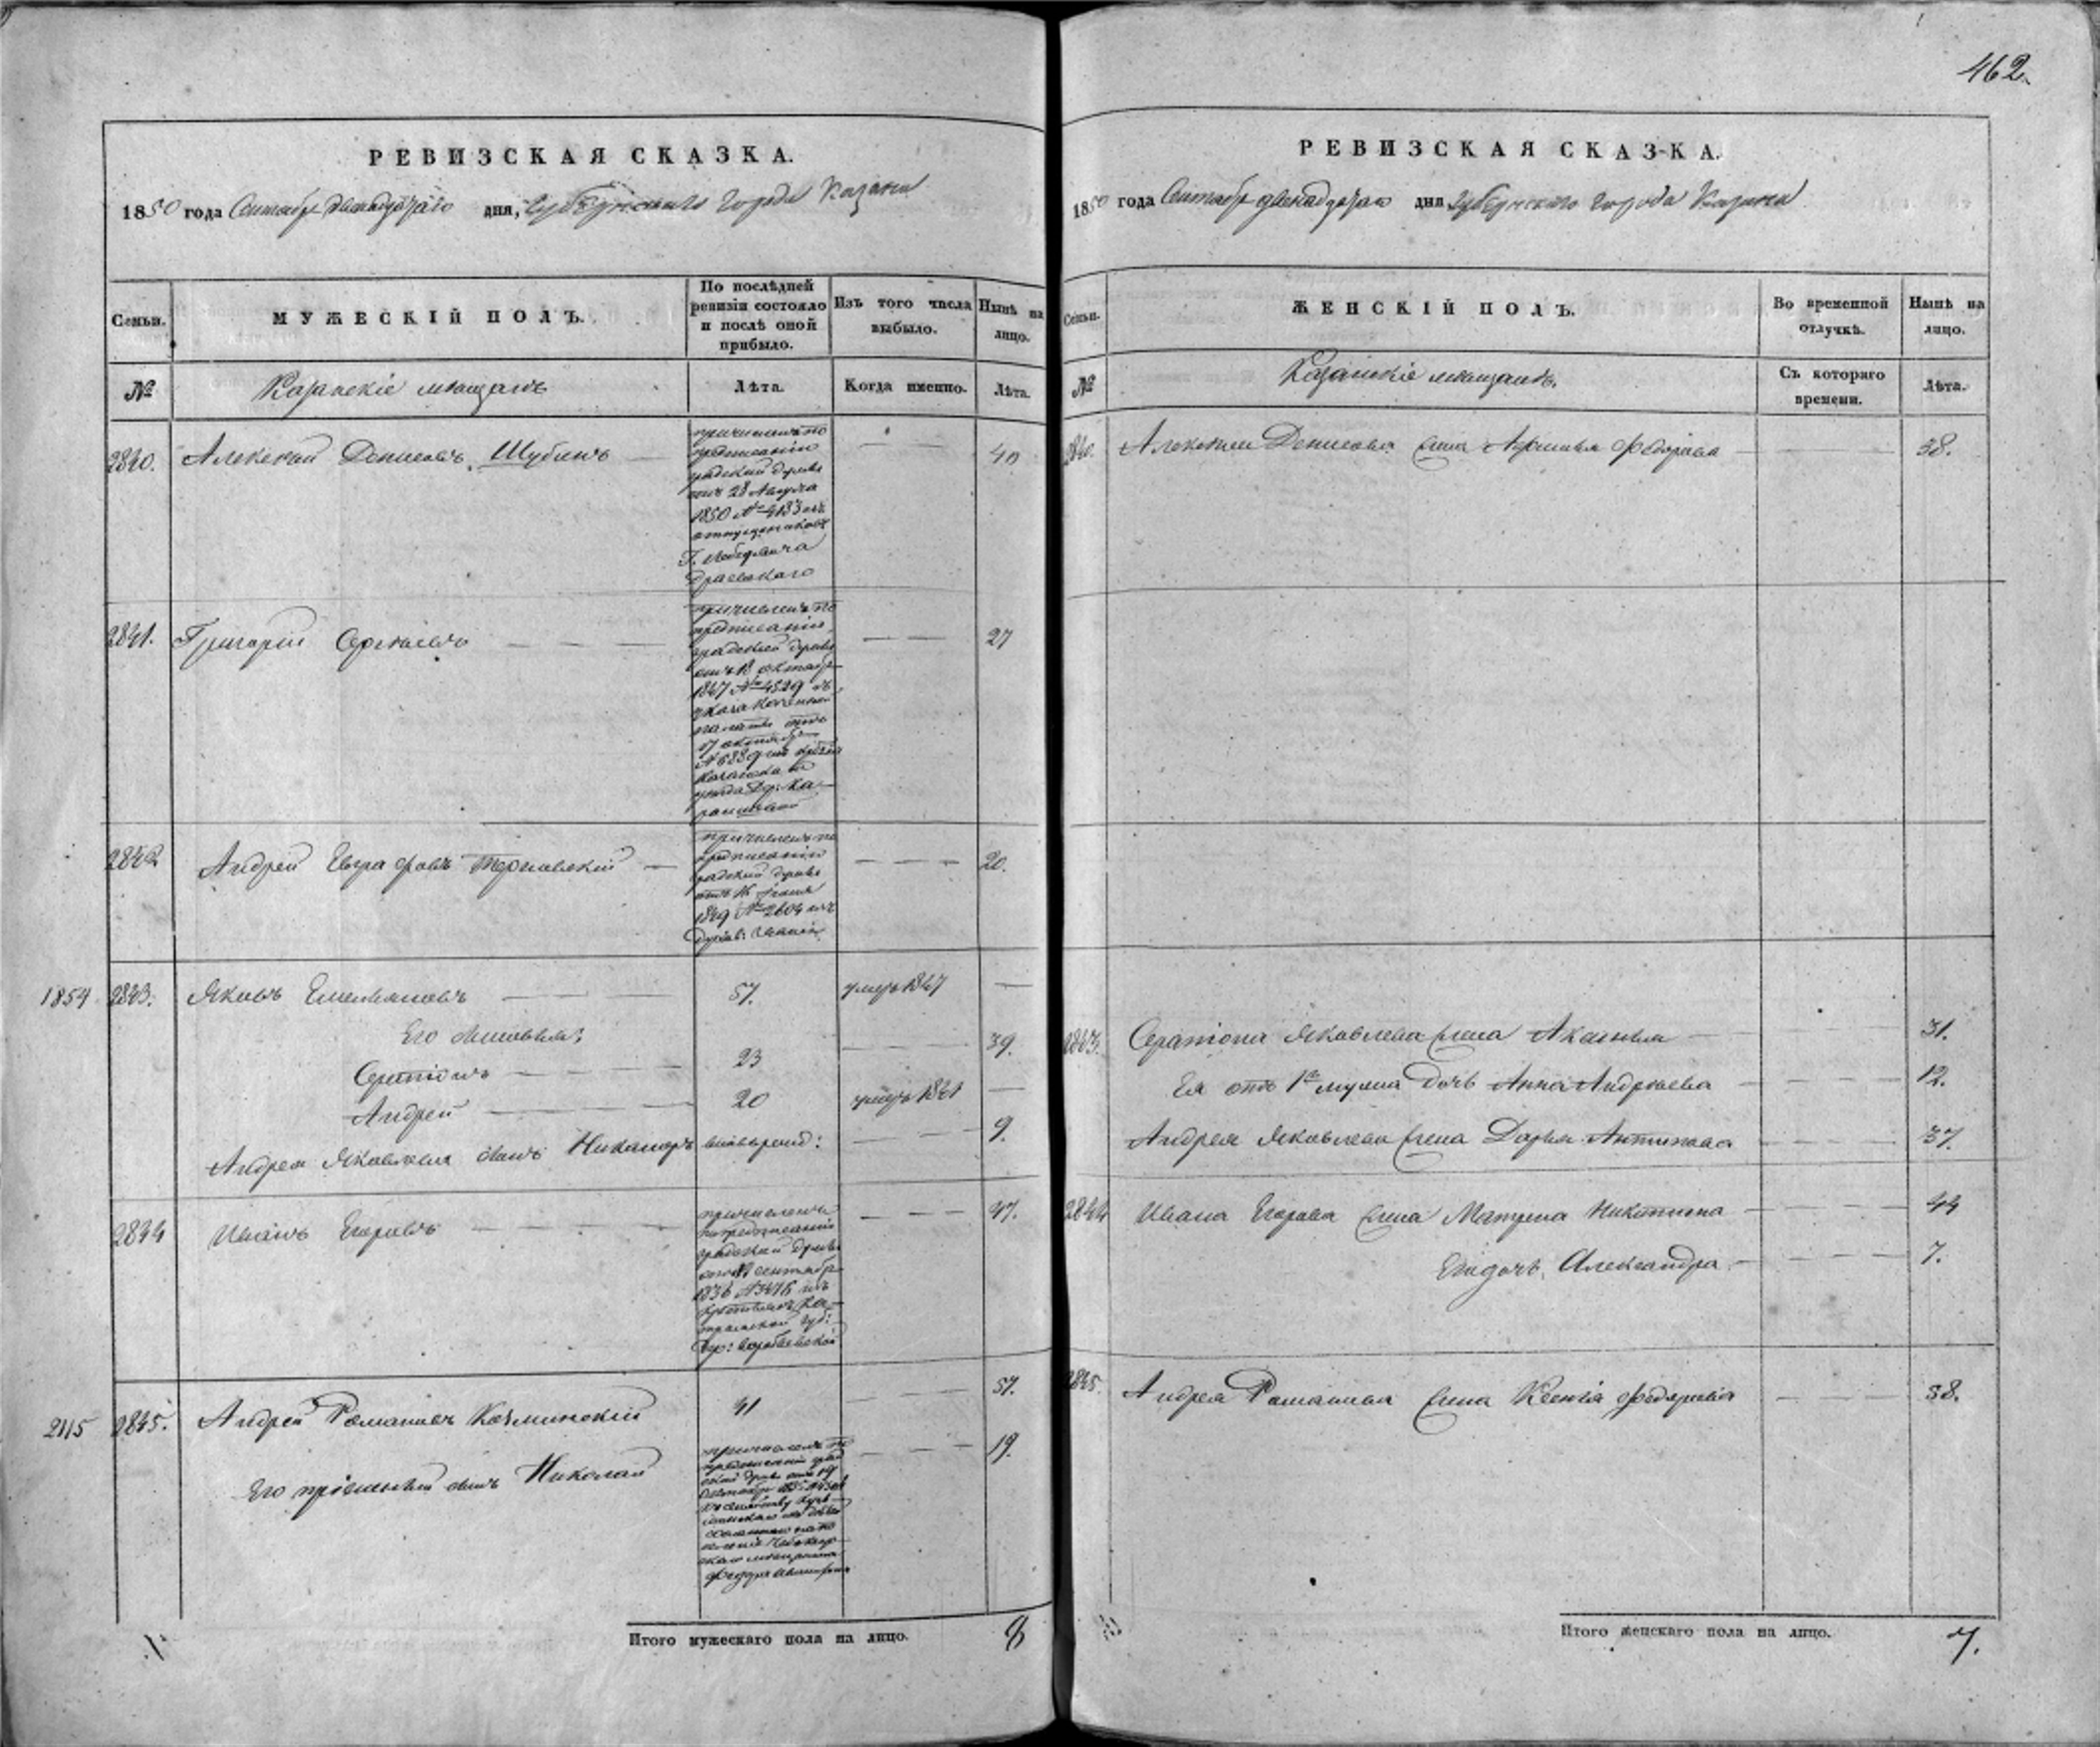 462.
РЕВИЗСКАЯ СКАЗКА.
1850 года Сентября двенадцатаго дня, Губернскаго города Казани
Семьи.
МУЖЕСКІЙ ПОЛЪ.
По послѣдней ревизіи состояло и послѣ оной прибыло.
Изъ того числа выбыло.
Нынѣ на лицо.
№
Казанскіе мѣщане
Лѣта.
Когда именно.
Лѣта.
2840. Алексей Денисовъ Шубинъ 40
причисленъ по
предписанію
градской думы
отъ 28 Августа
1850 № 4133 изъ
отпущенниковъ
2841. Григорій Сергѣевъ 27
причисленъ по
предписанію
градской думы
1847 № 4529
указа Казенной
палаты отъ
17 октября
2842 Андрей Евграфовъ Терновскій 20.
причисленъ по
предписанію
градской думы
1849 № 2604 изъ
духов: званія
1854 2843. Яковъ Емельяновъ 57. умеръ 1847
Его сыновья:
Серапіонъ 23 39.
Андрей 20 умеръ 1841
Андрея Яковлева сынъ Никаноръ 9.
2844 Иванъ Егоровъ 47.
причисленъ
по предписанію
градской думы
сентября
1836 № 3476 изъ
2115 2845. Андрей Романовъ Козминскій 41 57.
Его пріемный сынъ Николай 19.
причисленъ по
предписанію град
ской думы отъ 19
Итого мужескаго пола на лицо. 8
РЕВИЗСКАЯ СКАЗКА.
1850 года Сентября двенадцатаго дня Губернскаго города Казани
Семьи.
ЖЕНСКІЙ ПОЛЪ.
Во временной отлучкѣ.
Нынѣ на лицо.
№
Казанскіе мѣщане.
Съ котораго времени.
Лѣта.
2840. Алексея Денисова жена Афимья Федорова 38.
2843. Серапіона Яковлева жена Аксинья 31.
Ея отъ 1го мужа дочь Анна Андреева 12.
Андрея Яковлева жена Дарья Антипова 37.
2844 Ивана Егорова жена Матрена Никитина 44
Его дочь Александра 7.
2845. Андрея Романова жена Ксенія Федорова 58.
Итого женскаго пола на лицо. 7.